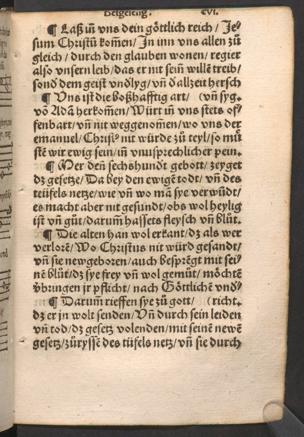 Beigeleng. cvi.
¶ Laß in vns dein göttlich reich / Je⸗
sum Christū kom̄en / In inn vns allen zů
gleich / durch den glauben wonen / regier
also vnsern leib / das er nit sein̄ willē treib /
sond dem geist vndlyg / vn̄ ď allzeit hersch
¶ Vns ist die boßhafftig art / (vn̄ syg.
vō Adā herkom̄en / Würt in vns stets of⸗
fenbart / vn̄ nit weggenom̄en / wo vns der
emanuel / Christ⸗ nit würde zů teyl / so mů
stē wir ewig sein / in vnusprechlicher pein.
¶ Mer den̄ sechshundt gebott / zeyget
dz gesetz / Da bey den ewigē todt / vn̄ des
teüfels netze / wie vn̄ wo mā sye verwūdt /
es macht aber nit gesundt / obs wol heylig
ist vn̄ gůt / darum̄ hassets fleysch vn̄ blůt.
¶ Die alten han wol erkant / dz als wer
verlorē / Wo Christus nit würd gesandt /
vn̄ sie newgeboren / auch besprēgt mit sei⸗
nē blůt / dz sye frey vn̄ wol gemůt / möchtē
v̈bringen jr pflicht / nach Göttliche vnď
¶ Darum̄ rieffen sye zů gott / (richt.
dz er jn wolt senden / Vn̄ durch sein leiden
vn̄ tod / dz gesetz volenden / mit seinē newē
gesetz / zůryssē des tüfels netz / vn̄ sie durch